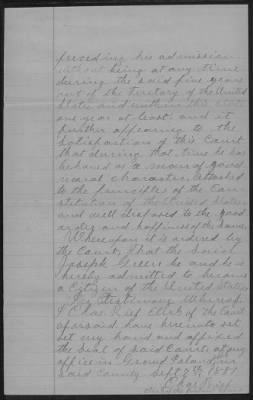 preceding his admission
without being at any time
during the said five years
out of the territory of the United
States and within this State
one year at least and it
further appearing to the
satisfaction of this Court
that during that time he has
behaved as a man of good
moral character, attached
to the principles of the Con
stitution of the United States
and well disposed to the good
order and happiness of the same.
Whereupon it is ordered by
the Court, that the said
Joseph be and he is
hereby admitted to become
a Citizen of the United States
In Testimony Whereof
I Clerk of the Court
aforesaid have hereunto set
set my hand and affixed
the Seal of said Court at my
office in Grand Island, in
said County Sept